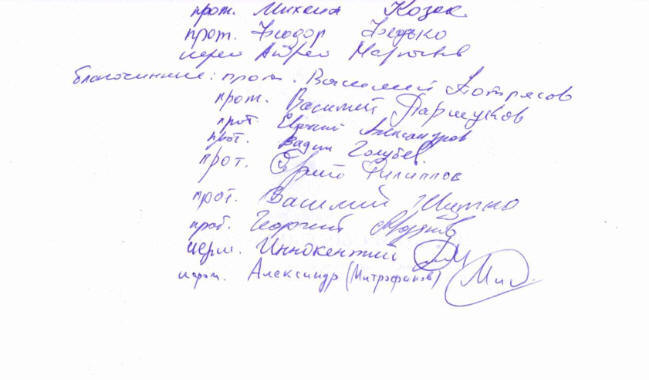 прот. Михаил Козак
прот. Феодор Федько
иерей Андрей
благочинные: прот. Василий Потрясов
прот. Василий Паршуков
прот. Евгений Александров
прот. Вадим Голубев
прот. Филиппов
прот. Василий
прот. Георгий
иерм. Иннокентий
иером. Александр (Митрофанов)